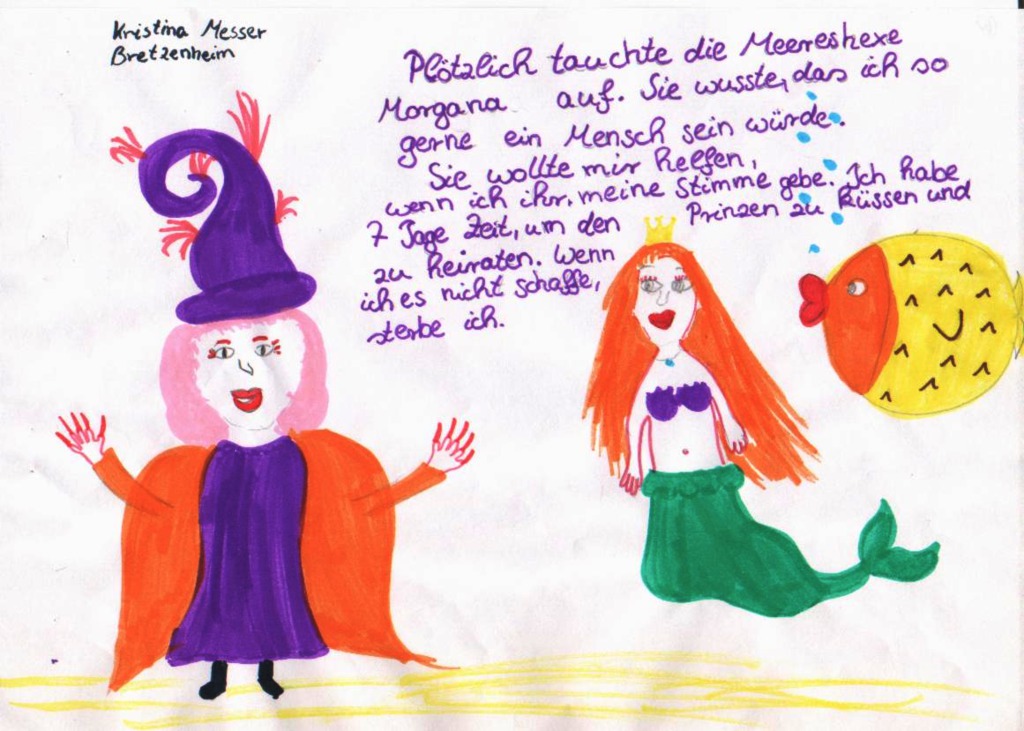 Kristina Messer
Bretzenheim
Plötzlich tauchte die Meereshexe
Morgana auf. Sie wusste, das ich so
gerne ein Mensch sein würde.
Sie wollte mir helfen,
wenn ich ihr meine Stimme gebe. Ich habe
7 Tage Zeit, um den Prinzen zu küssen und
zu heiraten. Wenn
ich es nicht schaffe,
sterbe ich.